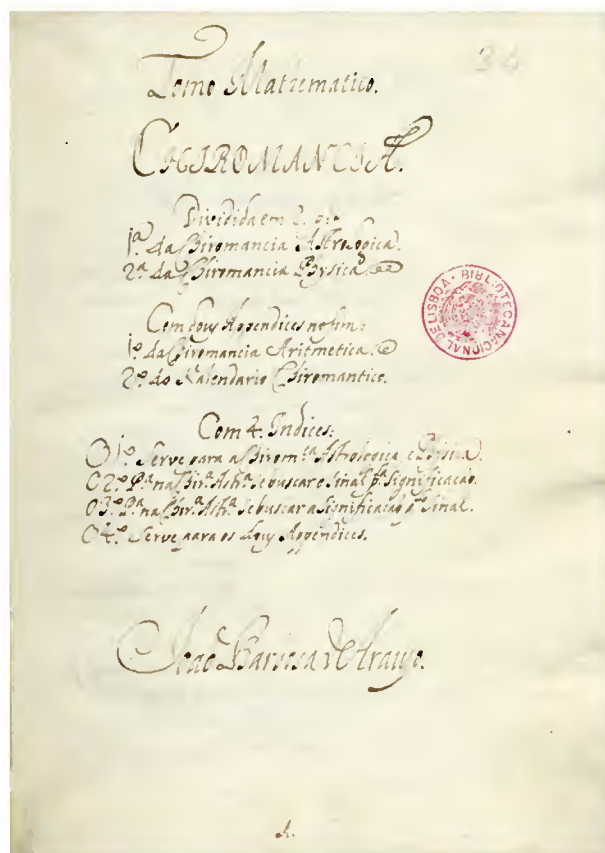 34
Tomo Mathematico.
CHIROMANCIA.
Dividida em 2. p.es
1ª. da Chiromancia Astrologica.
2ª. da Chiromancia Physica.
Com dous Appendices no fim:
1º. da Chiromancia Aritmetica.
2º. do Kalendario Chiromantico.
Com 4. Indices:
O 1º. Serve para a Chirom.ca Astrologica e Physica.
O 2º. Pª. na Chir.ª Ast.ª se buscar o Sinal pª. significação.
O 3º. Pª. na Chir.ª Ast.ª se buscar a significação pº. Sinal.
O 4º. Serve para os dous Appendices.
João Barbosa de Araujo.
BIBLIOTECA NACIONAL DE LISBOA